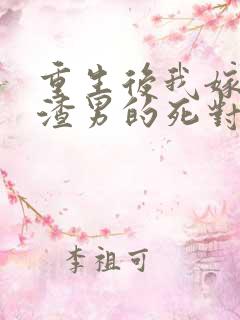 重生後我嫁
渣男的死對
李祖可